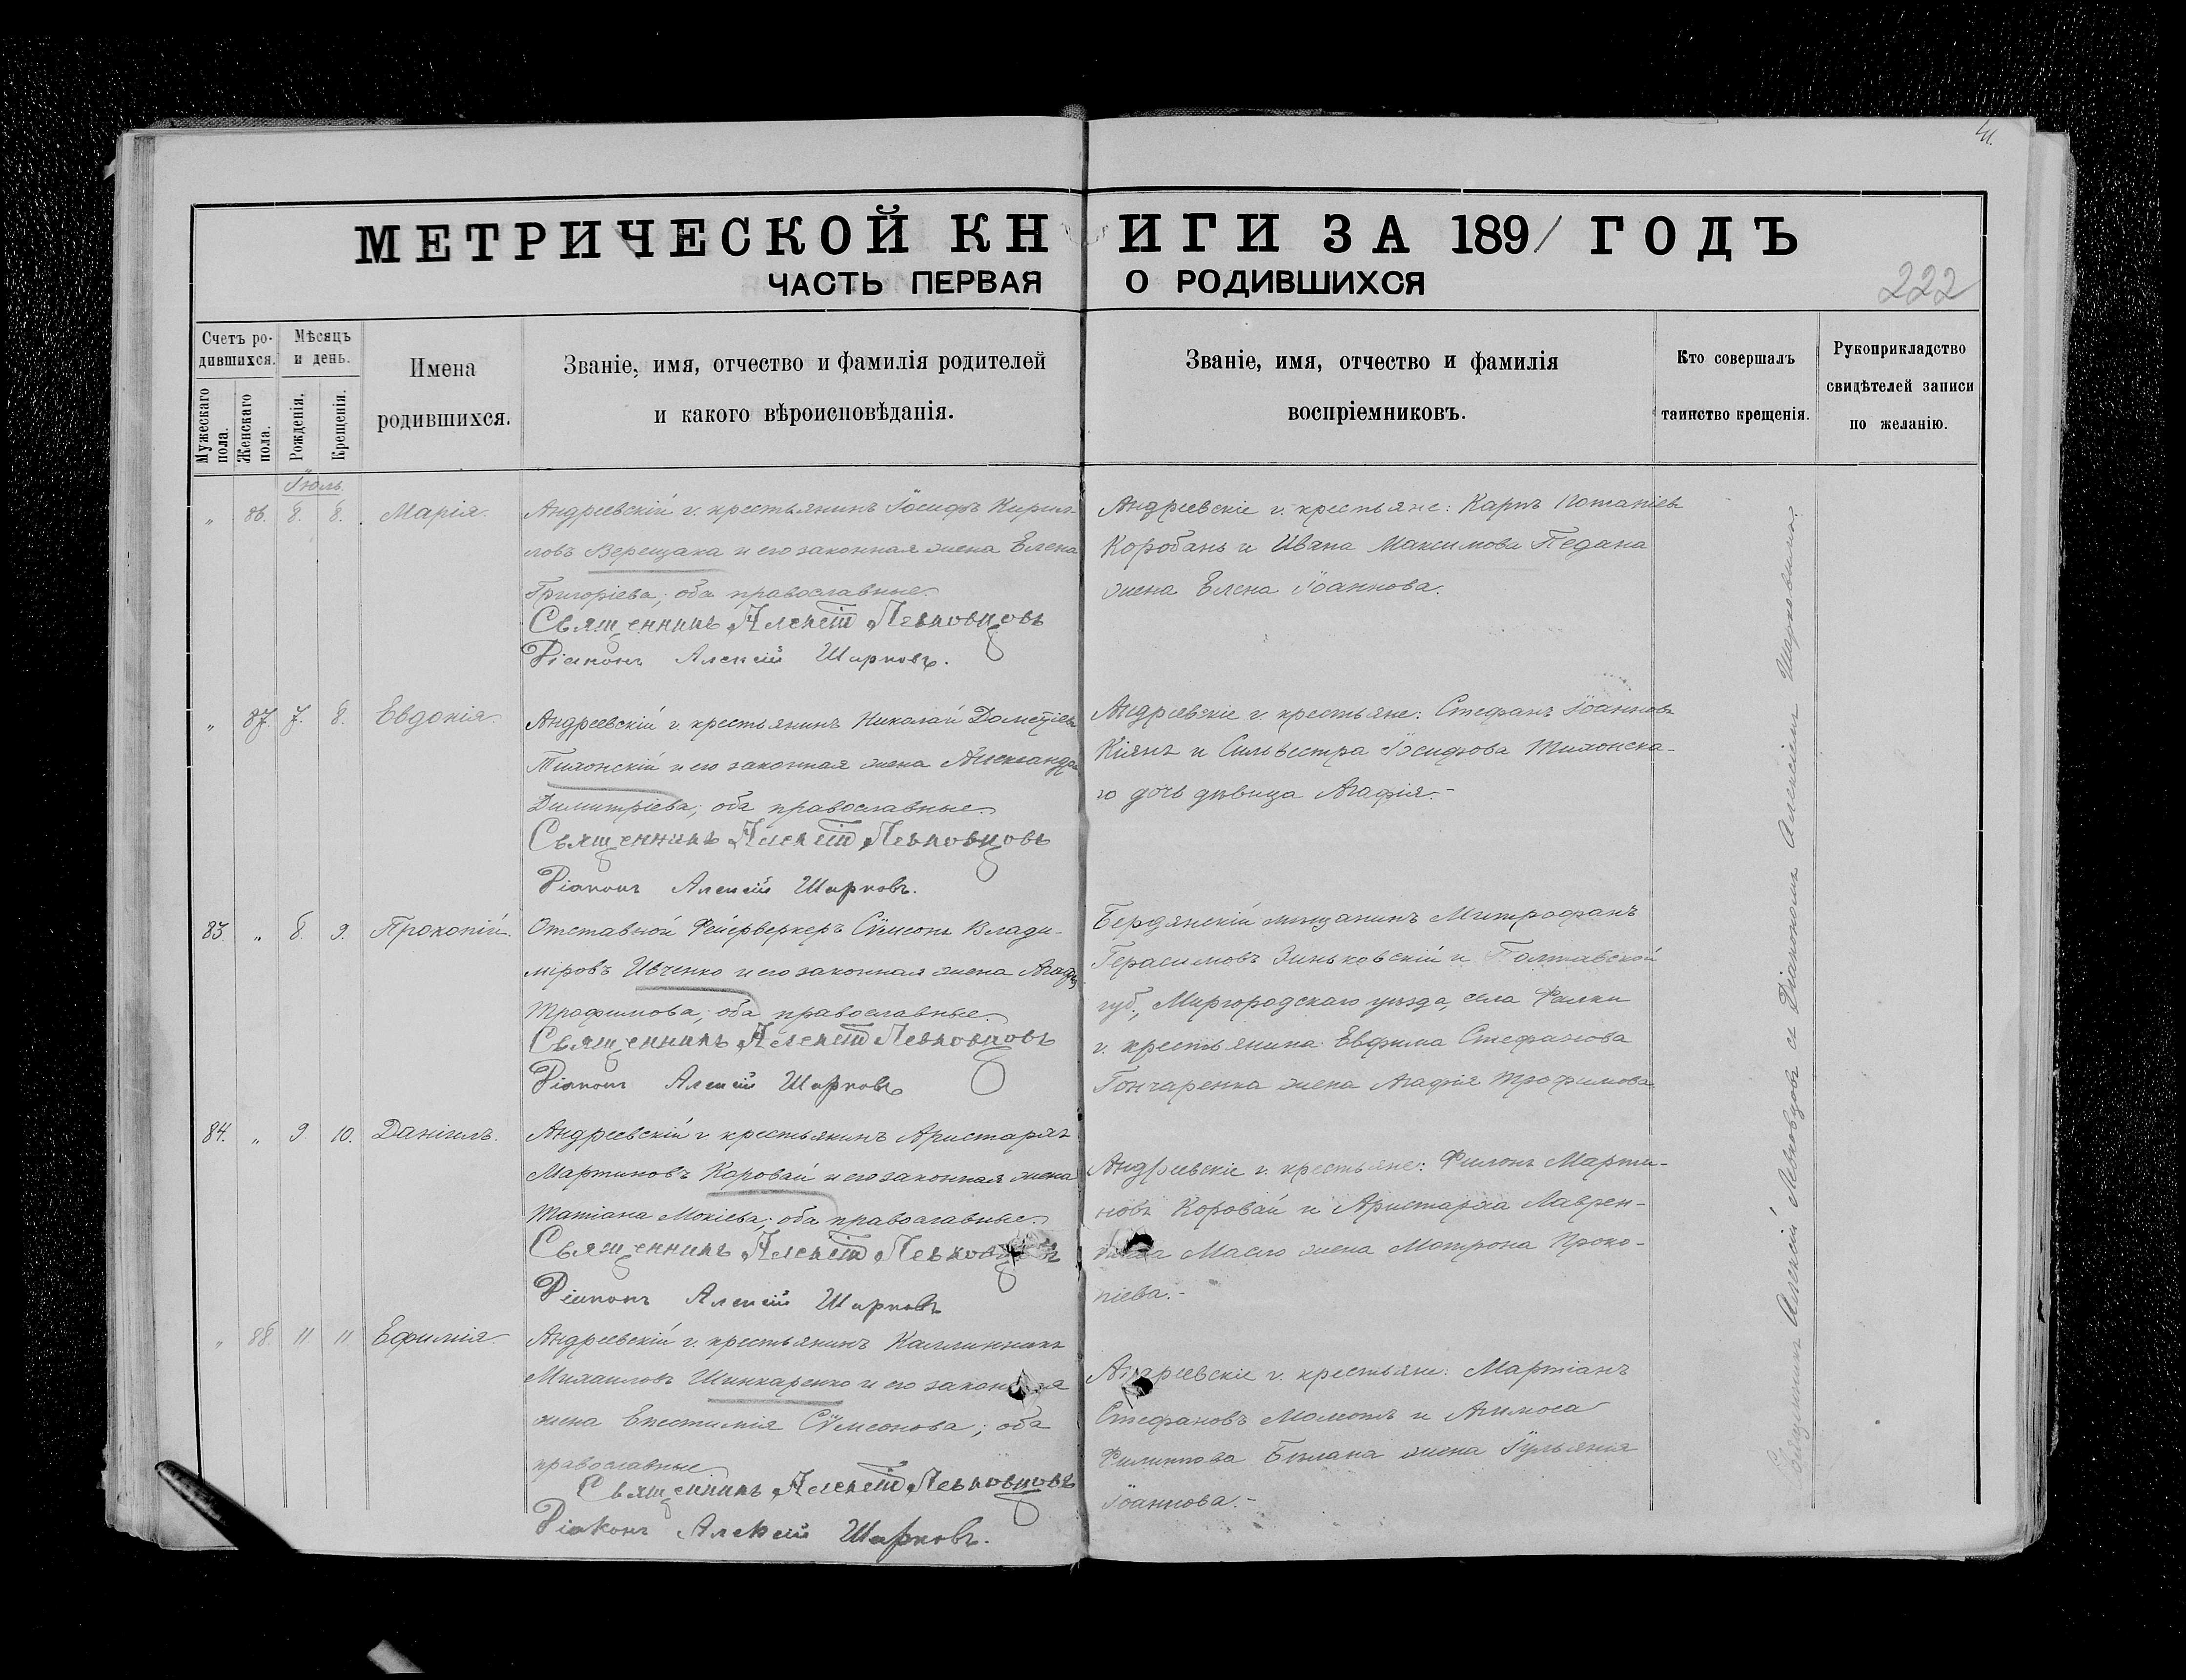 41.
МЕТРИЧЕСКОЙ КНИГИ ЗА 1891 ГОДЪ
ЧАСТЬ ПЕРВАЯ О РОДИВШИХСЯ
222
Счетъ родившихся.
Мужескаго пола.
Женскаго пола.
Мѣсяцъ и день.
Рожденія.
Крещенія.
Имена
родившихся.
Званіе, имя, отчество и фамилія родителей
и какого вѣроисповѣданія.
Званіе, имя, отчество и фамилія
воспріемниковъ.
Кто совершалъ
таинство крещенія.
Рукоприкладство
свидѣтелей записи
по желанію.
Іюль.
„ 86. 8. 8. Марія.
Андреевскій г. крестьянинъ Іосифъ Кирил-
ловъ Верещака и его законная жена Елена
Григоріева; оба православные.
Священникъ Алексій Левковцовъ
Діаконъ Алексій Шарковъ.
Андреевскіе г. крестьяне: Карпъ Потапіевъ
Коробань и Ивана Максимова Педана
жена Елена Іоаннова.
„ 87. 7. 8. Евдокія.
Андреевскій г. крестьянинъ Николай Дометіевъ
Тихонскій и его законная жена Александра
Димитріева; оба православные.
Священникъ Алексій Левковцовъ
Діаконъ Алексій Шарковъ.
Андреевскіе г. крестьяне: Стефанъ Іоанновъ
Кіянъ и Сильвестра Іосифова Тихонска-
го дочь дѣвица Агафія.-
83. „ 8. 9. Прокопій.
Отставной Фейерверкеръ Сѵмеонъ Влади-
міровъ Ивченко и его законная жена Агафія
Трофимова; оба православные.
Священникъ Алексій Левковцовъ
Діаконъ Алексій Шарковъ
Бердянскій мѣщанинъ Митрофанъ
Герасимовъ Зиньковскій и Полтавской
губ., Миргородскаго уѣзда, села
г. крестьянина Евфима Стефанова
Гончаренка жена Агафія Трофимова
84. „ 9. 10. Даніилъ.
Андреевскій г. крестьянинъ Аристархъ
Мартиновъ Коровай и его законная жена
Татіана Мокіева; оба православные.
Священникъ Алексій Левковцовъ
Діаконъ Алексій Шарковъ
Андреевскіе г. крестьяне: Филонъ Марти-
новъ Коровай и Аристарха Лаврен-
Масло жена Матрона Проко-
піева.-
„ 88. 11 11 Ефимія
Андреевскій г. крестьянинъ Каллинникъ
Михаиловъ Шинкаренко и его законная
жена Епистимія Сѵмеонова; оба
православные
Священникъ Алексій Левковцовъ
Діаконъ Алексій Шарковъ.
Андреевскіе г. крестьяне: Мартіанъ
Стефановъ и
Филиппова Билана жена Іульянія
Іоаннова.-
Священникъ Алексій Левковцовъ съ Діакономъ Алексіемъ Шарковымъ